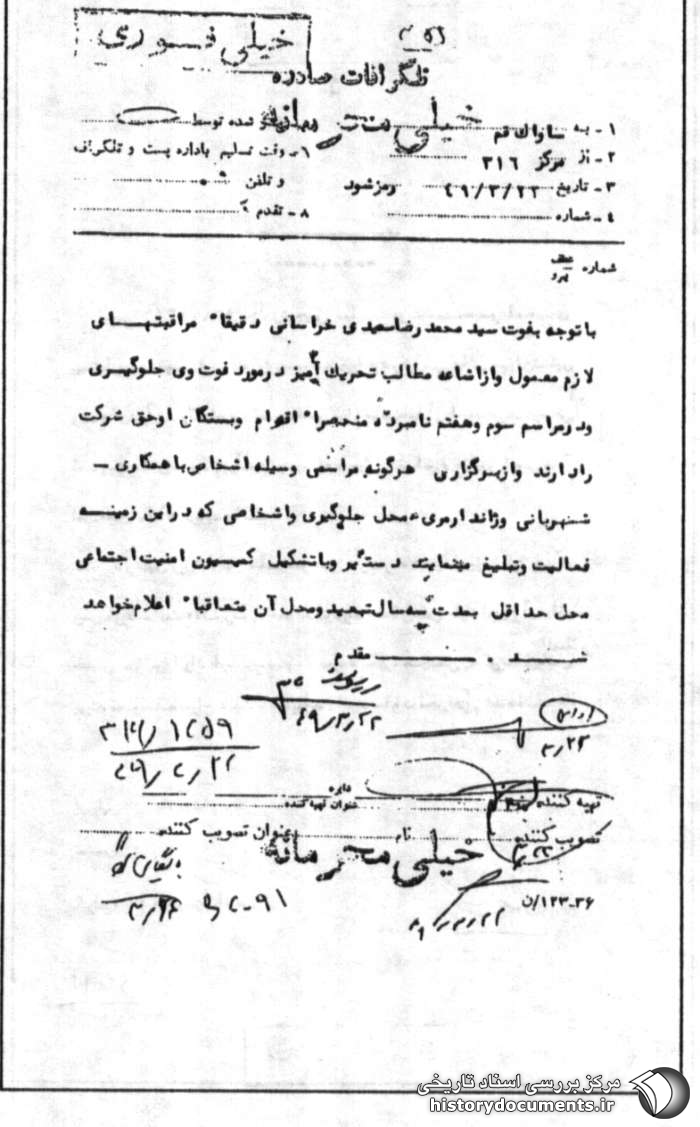 خیلی فـوری
(۵)
تلگرافات صادره
خیلی محرمانه
۱ - به ساواک قم
شده توسط
۲ - از مرکز ۳۱۶
۶ - وقت تسلیم باداره پست و تلگراف
۳ - تاریخ ۴۹/۳/۲۲ رمزشود
و تلفن
۴ - شماره
۸ - تقدم
شماره عطف پیرو
باتوجه بفوت سید محمد رضاسعیدی خراسانی دقیقاً مراقبتهـــای
لازم معمول وازاشاعه مطالب تحریک آمیز درمورد فوت وی جلوگیری
ودرمراسم سوم وهفتم نامبرده منحصراً اقوام وبستگان اوحق شرکت
رادارند وازبرگزاری هرگونه مراسمی وسیله اشخاص باهمکاری -
شهربانی وژاندارمری محل جلوگیری واشخاصی که دراین زمینـــه
فعالیت وتبلیغ مینمایند دستگیر وباتشکیل کمیسیون امنیت اجتماعی
محل حداقل بمدت سه سال تبعید ومحل آن متعاقباً اعلام خواهد
شـــد . مقدم
۴۹/۳/۲۲
۳۱۶/۱۲۵۹
۴۹/۳/۲۲
۳/۲۲
تهیه کننده
دایره
عنوان تهیه کننده
تصویب کننده
نام
عنوان تصویب کننده
خیلی محرمانه
۱۲۳-۳۶/ن
مرکز بررسی اسناد تاریخی
historydocuments.ir